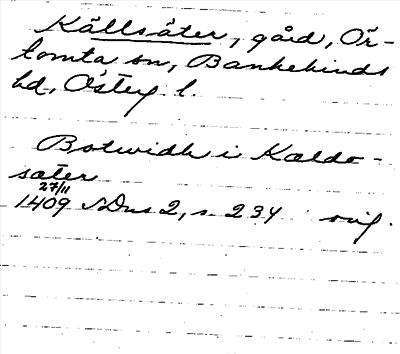 Källsäter, gård, Ör-
tomta sn, Bankekinds
hd, Österg. l.
Botwidh i Kældo-
sæter
27/11
1409 SDns 2, s. 234 orig.